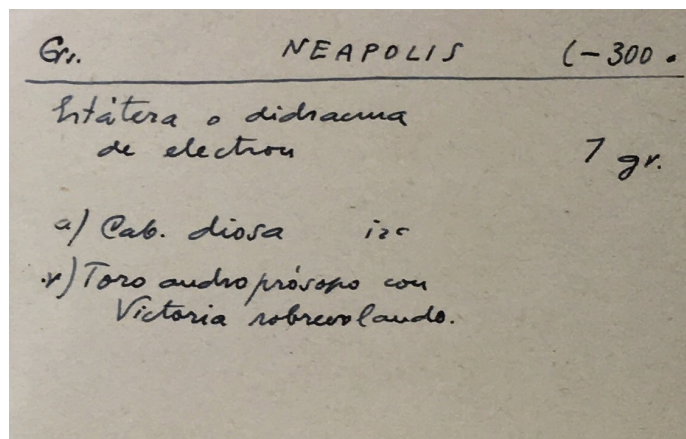 Gr. NEAPOLIS (-300.
Estátera o didracma
de electron 7 gr.
a) Cab. diosa izc
r) Toro andro prósopo con
Victoria sobrevolando.